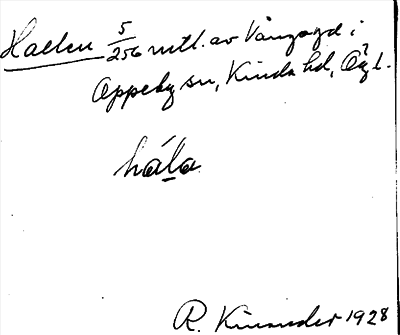 Hallen 5/256 mtl. av Vångsgd i
Oppeby sn, Kinda hd, Ögl.
håla
R. Kinander 1928